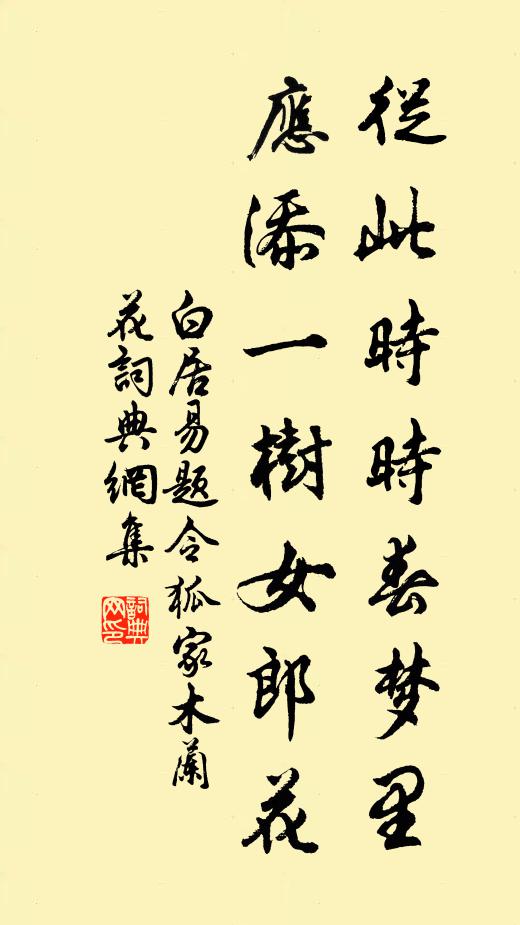 從此時時春梦里
應添一樹女郎花
白居易題令狐家木蘭
花詞典網集
詞典
网印